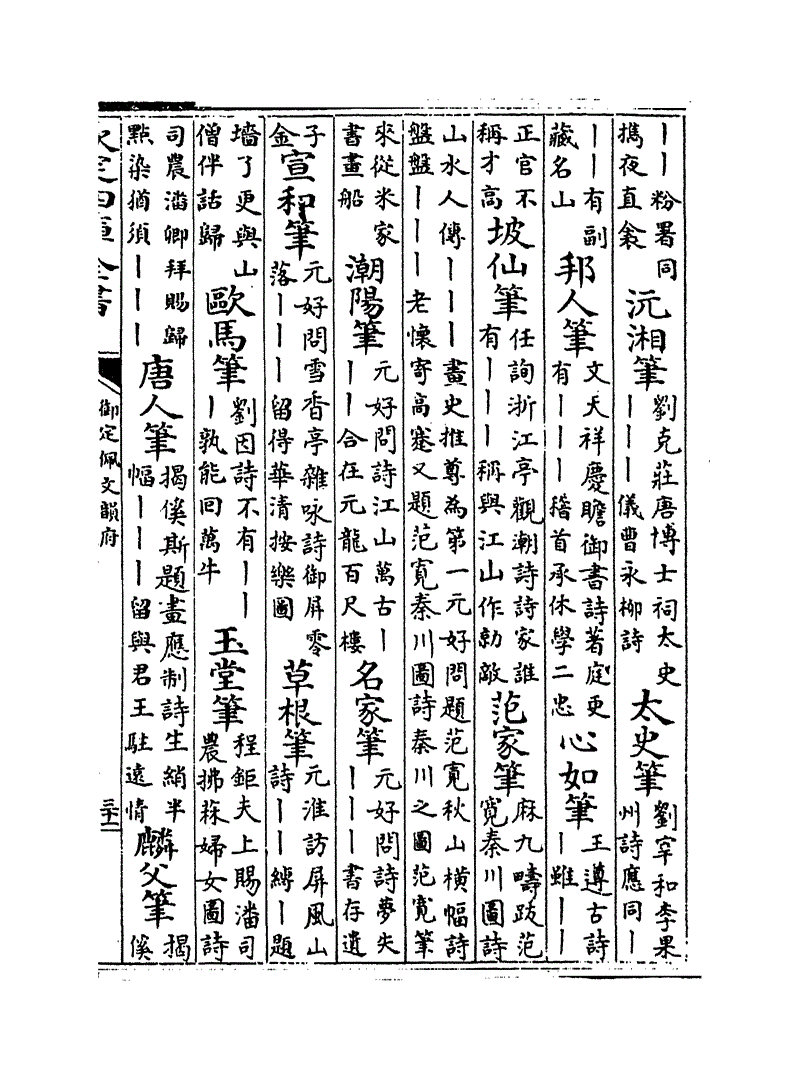 丨丨粉署同擕夜直衾 沅湘筆 劉克莊唐博士祠太史丨丨丨儀曹永柳詩 太史筆 劉宰和李果州詩應同丨
丨丨有副藏名山 邦人筆 文天祥慶瞻御書詩著庭更有丨丨丨稽首承休學二忠 心如筆 王遵古詩丨雖丨丨
正官不稱才高 坡仙筆 任詢浙江亭觀潮詩詩家誰有丨丨丨稱與江山作勍敵 范家筆 麻九疇跋范寛秦川圖詩
山水人傳丨丨丨畫史推尊為第一元好問題范寛秋山橫幅詩盤盤丨丨丨老懷寄高蹇又題范寛秦川圖詩秦川之圖范寛筆
來從米家書畫船 潮陽筆 元好問詩江山萬古丨丨丨合在元龍百尺樓 名家筆 元好問詩夢失丨丨丨書存遺
子金 宣和筆 元好問雪香亭雜咏詩御屏零落丨丨丨留得華清按樂圖 草根筆 元淮訪屏風山詩丨丨縛丨題
墻了更與山僧伴話歸 歐馬筆 劉因詩不有丨丨丨孰能回萬牛 玉堂筆 程鉅夫上賜潘司農拂菻婦女圖詩
司農潘卿拜賜歸點染猶須丨丨丨 唐人筆 揭傒斯題畫應制詩生綃半幅丨丨丨留與君王駐遠情 麟父筆 揭傒
欽定四庫全書 御定佩文韻府 三十二